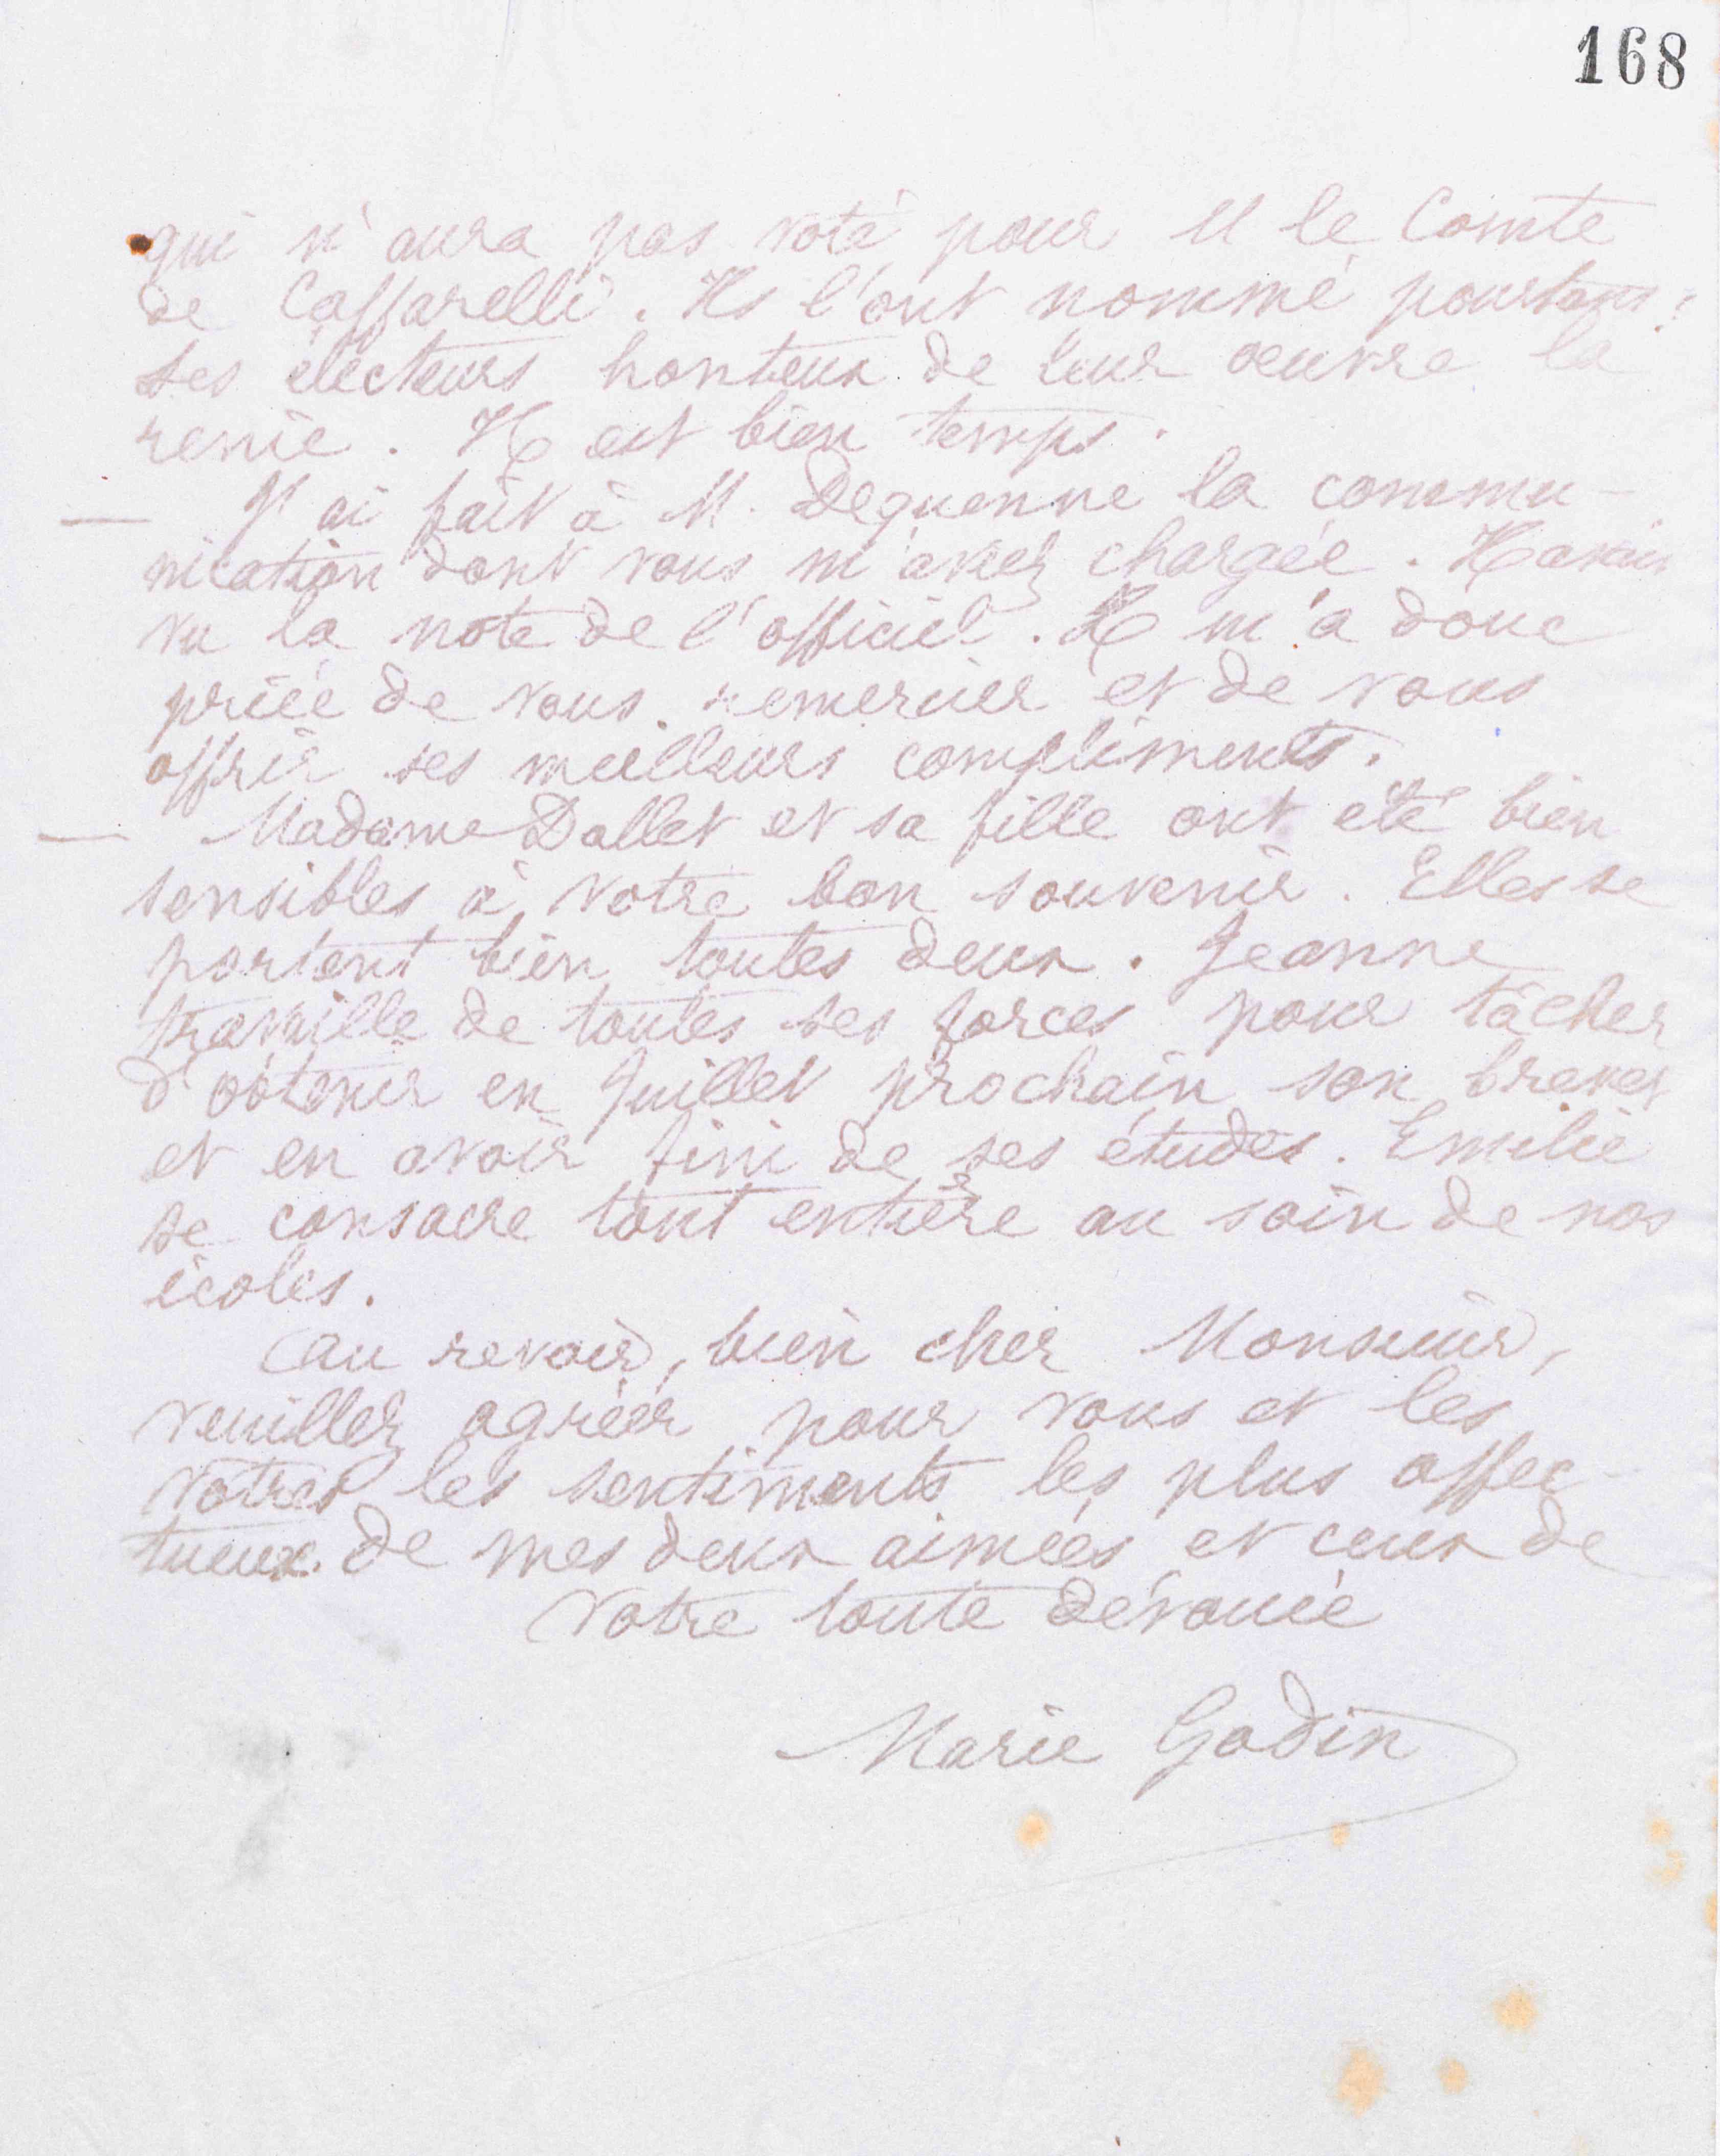 168
qui n'aura pas voté pour M le Comte
de Caffarelli. Ils l'ont nommé pourtant;
ses électeurs honteux de leur oeuvre la
renie. Il est bien temps.
— J'ai fait à M. Dequenne la commu-
nication dont vous m'avez chargée. Il avait
vu la note de l'officiel. Il m'a donc
priée de vous remercier et de vous
offrir ses meilleurs compliments.
— Madame Dallet et sa fille ont été bien
sensibles à votre bon souvenir. Elles se
portent bien toutes deux. Jeanne
travaille de toutes ses forces pour tâcher
d'obtenir en Juillet prochain son brevet
et en avoir fini de ses études. Emilie
se consacre tout entière au soin de nos
écoles.
Au revoir, bien cher Monsieur,
veuillez agréer pour vous et les
vôtres les sentiments les plus affec-
tueux de mes deux aimées et ceux de
votre toute dévouée
Marie Godin